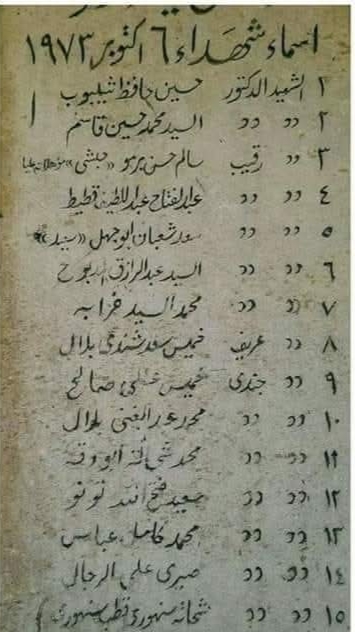 اسماء شهداء ٦ اكتوبر ١٩٧٣
١ الشهيد الدكتور حسين حافظ شيبوب
٢ دد دد السيد محمد حسين قاسم
٣ دد رقيب سالم حسن برمو «حبشى» مؤهلات عليا
٤ دد دد عبد الفتاح عبد اللطيف قطيط
٥ دد دد سعد شعبان ابو جهل «سيد»
٦ دد دد السيد عبد الرازق
٧ دد دد محمد السيد خزابه
٨ دد عريف خميس سعد شندى بلال
٩ دد جندى خميس صالح
١٠ دد دد محمد عبد الغنى بلال
١١ دد دد محمد شحاته أبو وقيه
١٢ دد دد سعيد فتح الله نونو
١٣ دد دد محمد كامل عباس
١٤ دد دد صبرى على الرجال
١٥ دد دد شحاته سنهورى قطب سنهورى